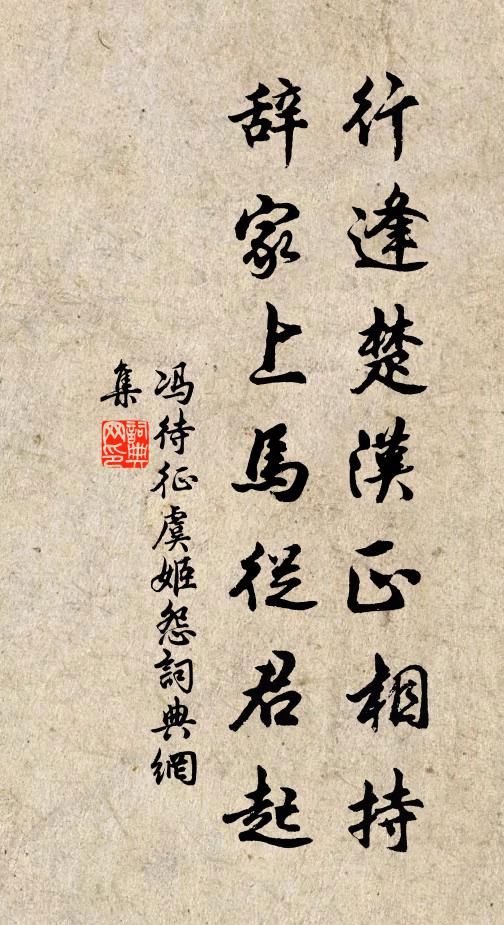 行逢楚漢正相持
辞家上馬從君起
冯待征虞姬怨詞典網
集
詞典网印